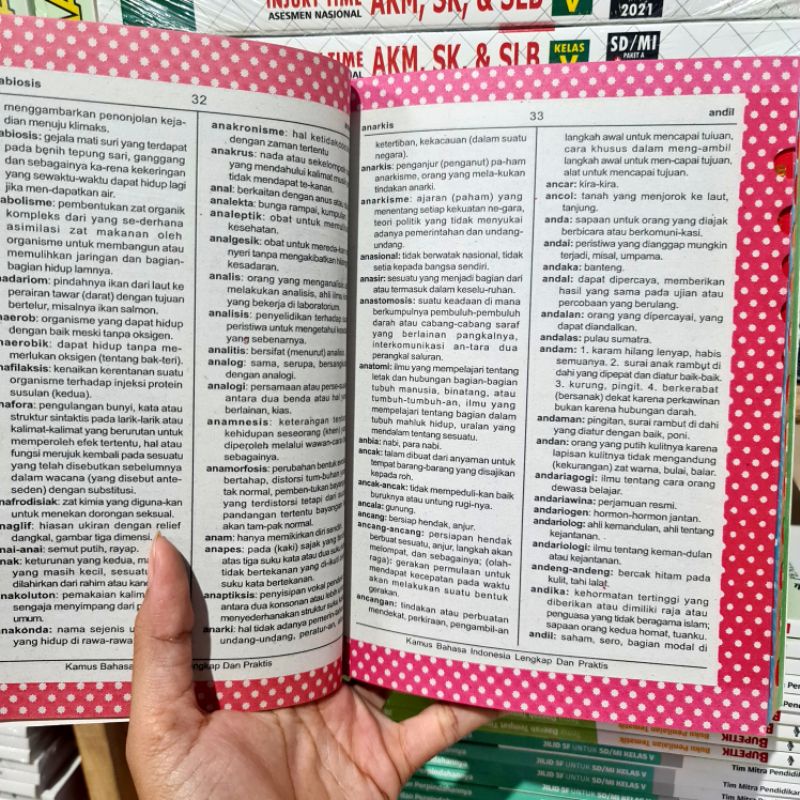 INJURY TIME
ASESMEN NASIONAL
AKM, SK, & SLB
V
2021
AKM, SK, & SLB
KELAS
V
SD/MI
PAKET A
abiosis
32
menggambarkan penonjolan keja-
dian menuju klimaks.
abiosis: gejala mati suri yang terdapat
pada benih tepung sari, ganggang
dan sebagainya ka-rena kekeringan
yang sewaktu-waktu dapat hidup lagi
jika men-dapatkan air.
abolisme: pembentukan zat organik
kompleks dari yang se-derhana
asimilasi zat makanan oleh
organisme untuk membangun atau
memulihkan jaringan dan bagian-
bagian hidup lamnya.
nadariom: pindahnya ikan dari laut ke
perairan tawar (darat) dengan tujuan
bertelur, misalnya ikan salmon.
naerob: organisme yang dapat hidup
dengan baik meski tanpa oksigen.
naerobik: dapat hidup tanpa me-
merlukan oksigen (tentang bak-teri).
nafilaksis: kenaikan kerentanan suatu
organisme terhadap injeksi protein
susulan (kedua).
nafora: pengulangan bunyi, kata atau
struktur sintaktis pada larik-larik atau
kalimat-kalimat yang berurutan untuk
memperoleh efek tertentu, hal atau
fungsi merujuk kembali pada sesuatu
yang telah disebutkan sebelumnya
dalam wacana (yang disebut ante-
seden) dengan substitusi.
nafrodisiak: zat kimia yang diguna-kan
untuk menekan dorongan seksual.
naglif: hiasan ukiran dengan relief
dangkal, gambar tiga dimensi.
nai-anai: semut putih, rayap.
nak: keturunan yang kedua,
yang masih kecil,
dilahirkan dari rahim atau
nakoluton: pemakaian
sengaja menyimpang dari
umum.
nakonda: nama sejenis
yang hidup di rawa-rawa
Kamus Bahasa
anakronisme: hal
dengan zaman tertentu
anakrus: nada atau
yang mendahului kalimat
tidak mendapat te-kanan.
anal: berkaitan dengan anus atau
analekta: bunga rampai, kumpulan
analeptik: obat untuk
kesehatan.
analgesik: obat untuk
nyeri tanpa mengakibatkan
kesadaran.
analis: orang yang
melakukan analisis, ahli ilmu
yang bekerja di laboratorium.
analisis: penyelidikan terhadap
peristiwa untuk mengetahui
yang sebenarnya.
analitis: bersifat (menurut) analisis
analog: sama, serupa,
dengan analogi.
analogi: persamaan atau
antara dua benda atau
berlainan, kias.
anamnesis: keterangan
kehidupan seseorang
diperoleh melalui
sebagainya.
anamorfosis: perubahan bentuk
bertahap, distorsi tum-buhan
tak normal, pemben-tukan
yang terdistorsi tetapi dari
pandangan tertentu bayangan
akan tam-pak normal.
anam: hanya memikirkan diri sendiri.
anapes: pada (kaki) sajak yang
atas tiga suku kata atau dua suku
tidak bertekanan yang
suku kata bertekanan.
anaptiksis: penyisipan vokal pendek
antara dua konsonan atau lebih
menyederhanakan struktur suku
anarki: hal tidak adanya
undang-undang,
Lengkap Dan Praktis
anarkis
33
andil
ketertiban, kekacauan (dalam suatu
negara).
anarkis: penganjur (penganut) pa-ham
anarkisme, orang yang mela-kukan
tindakan anarki.
anarkisme: ajaran (paham) yang
menentang setiap kekuatan ne-gara,
teori politik yang tidak menyukai
adanya pemerintahan dan undang-
undang.
anasional: tidak berwatak nasional, tidak
setia kepada bangsa sendiri.
anasir: sesuatu yang menjadi bagian dari
atau termasuk dalam keselu-ruhan.
anastomosis: suatu keadaan di mana
berkumpulnya pembuluh-pembuluh
darah atau cabang-cabang saraf
yang berlainan pangkalnya,
interkomunikasi an-tara dua
perangkal saluran.
anatomi: ilmu yang mempelajari tentang
letak dan hubungan bagian-bagian
tubuh manusia, binatang, atau
tumbuh-tumbuh-an, ilmu yang
mempelajari tentang bagian dalam
tubuh mahluk hidup, uralan yang
mendalam tentang sesuatu.
anbia: nabi, para nabi.
ancak: talam dibuat dari anyaman untuk
tempat barang-barang yang disajikan
kepada roh.
ancak-ancak: tidak mempeduli-kan baik
buruknya atau untung rugi-nya.
ancala: gunung.
ancang: bersiap hendak, anjur.
ancang-ancang: persiapan hendak
berbuat sesuatu, anjur, langkah akan
melompat, dan sebagainya; (olah-
raga): gerakan permulaan untuk
mendapat kecepatan pada waktu
akan melakukan suatu bentuk
gerakan.
ancangan: tindakan atau perbuatan
mendekat, perkiraan, pengambil-an
langkah awal untuk mencapai tuiuan,
cara khusus dalam meng-ambil
langkah awal untuk men-capai tujuan,
alat untuk mencapai tujuan.
ancar: kira-kira.
ancol: tanah yang menjorok ke laut,
tanjung.
anda: sapaan untuk orang yang diajak
berbicara atau berkomuni-kasi.
andai: peristiwa yang dianggap mungkin
terjadi, misal, umpama.
andaka: banteng.
andal: dapat dipercaya, memberikan
hasil yang sama pada ujian atau
percobaan yang berulang.
andalan: orang yang dipercayai, yang
dapat diandalkan.
andalas: pulau sumatra.
andam: 1. karam hilang lenyap, habis
semuanya. 2. surai anak rambut di
dahi yang dipepat dan diatur baik-baik.
3. kurung, pingit. 4. berkerabat
(bersanak) dekat karena perkawinan
bukan karena hubungan darah.
andaman: pingitan, surai rambut di dahi
yang diatur dengan baik, poni.
andan: orang yang putih kulitnya karena
lapisan kulitnya tidak mengandung
(kekurangan) zat warna, bulai, balar.
andariagogi: ilmu tentang cara orang
dewasa belajar.
andariawina: perjamuan resmi.
andariogen: hormon-hormon jantan.
andariolog: ahli kemandulan, ahli tentang
kejantanan.
andariologi: ilmu tentang keman-dulan
atau kejantanan.
andeng-andeng: bercak hitam pada
kulit, tahi lalat.
andika: kehormatan tertinggi yang
diberikan atau dimiliki raja atau
penguasa yang tidak beragama islam;
sapaan orang kedua homat, tuanku.
andil: saham, sero, bagian modal di
Kamus Bahasa Indonesia Lengkap Dan Praktis
BUPETIK
JILID 5F UNTUK SD/MI KELAS V
JILID 5F UNTUK SD/MI KELAS V
Tim Mitra Pendidikan